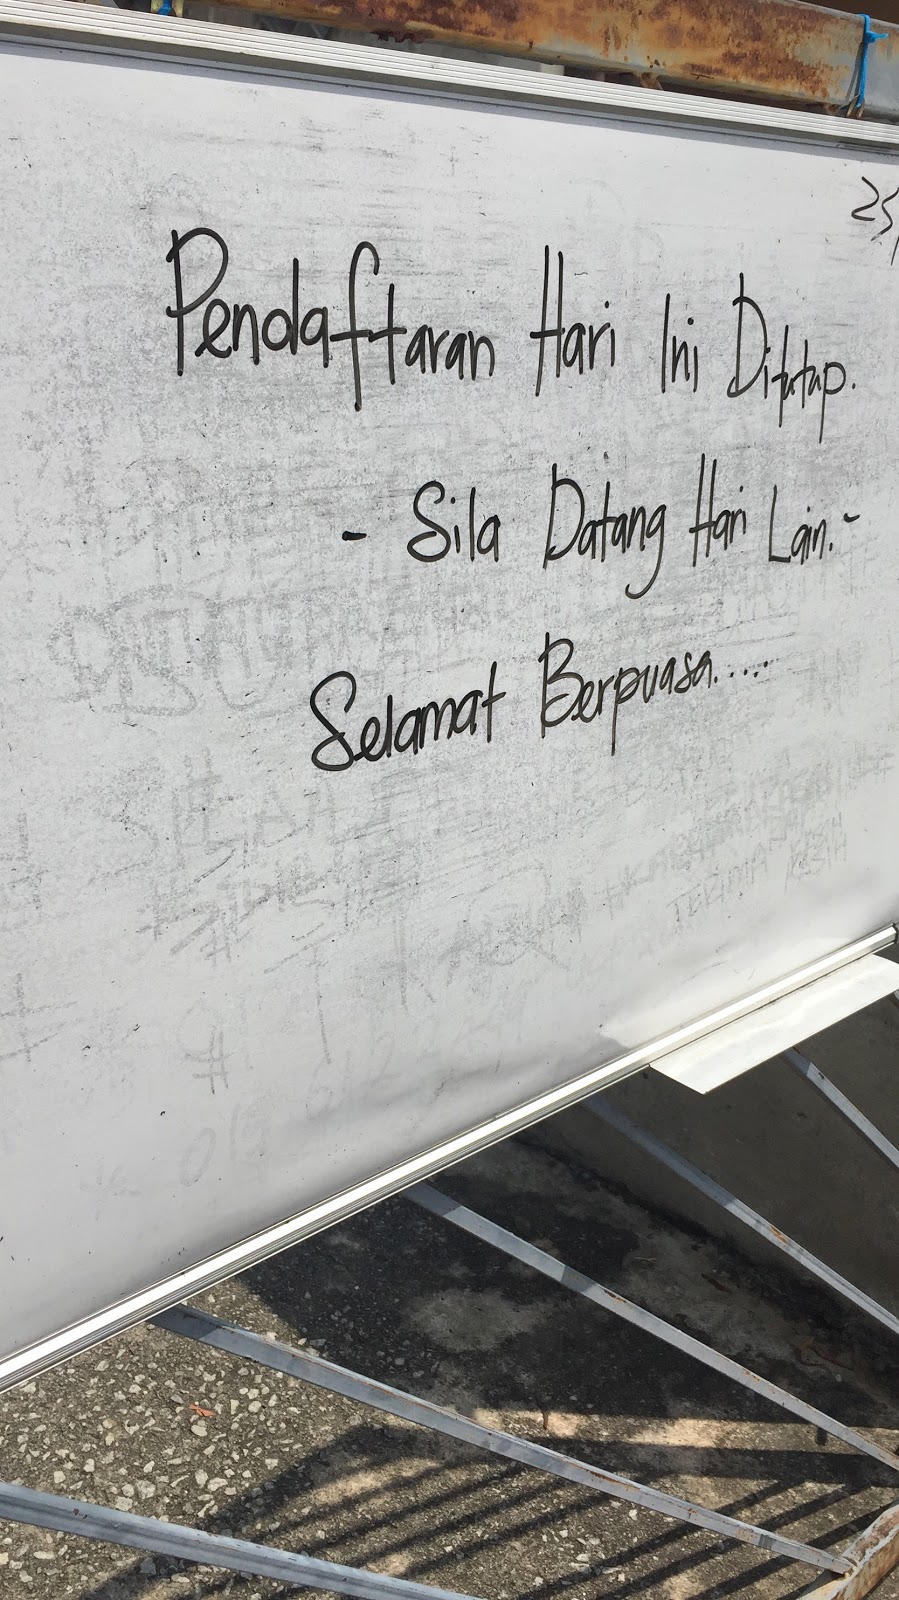 25/
Pendaftaran Hari Ini Ditutup.
- Sila Datang Hari Lain.-
Selamat Berpuasa.....
TERIMA KASIH